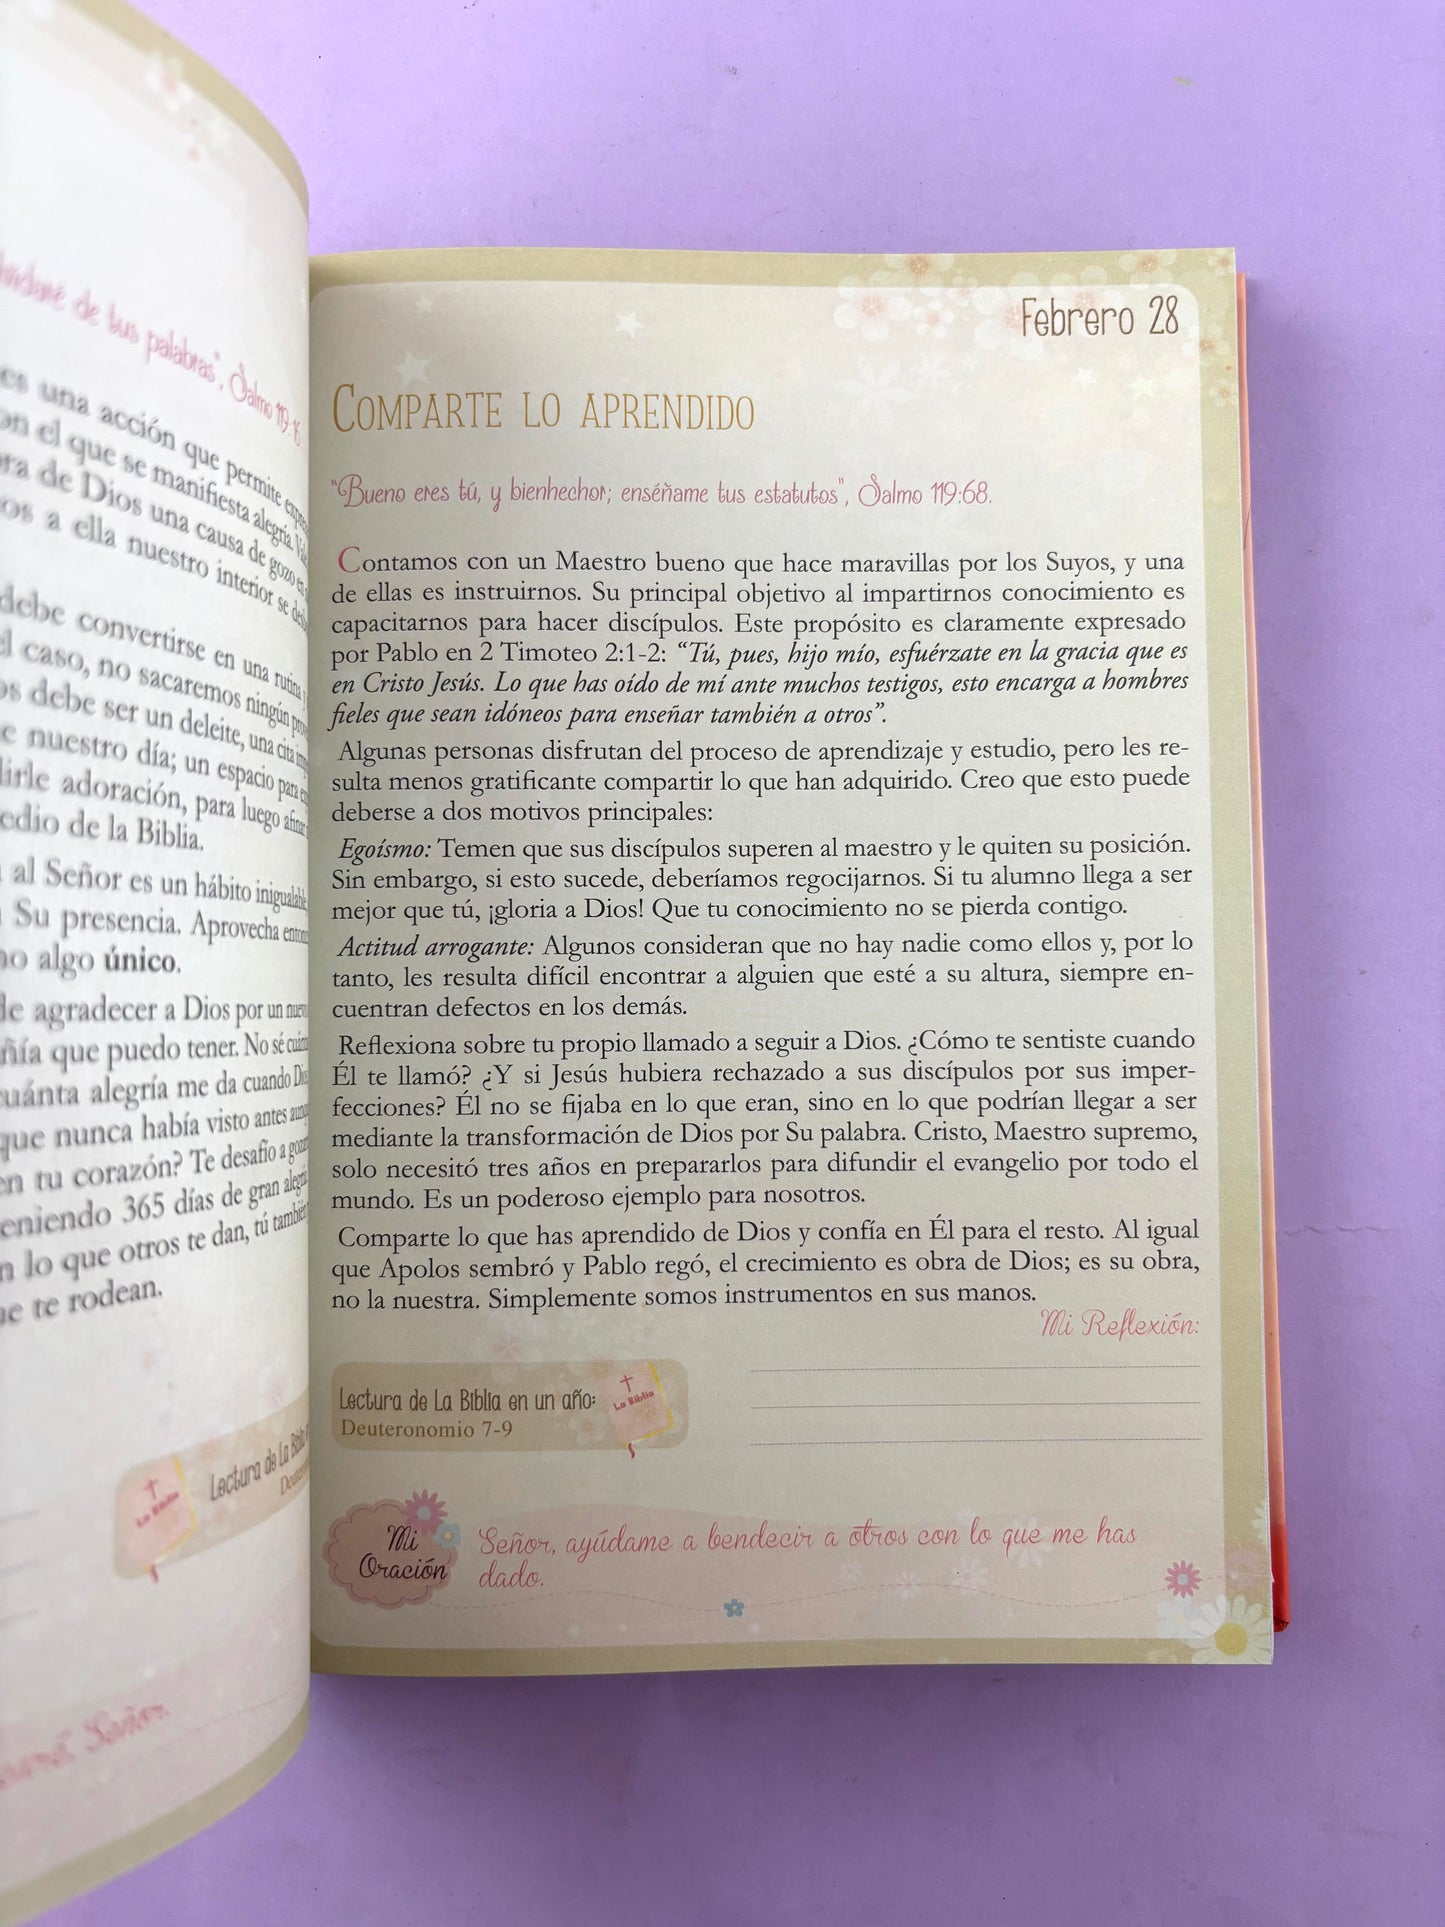 andaré de tus palabras", Salmo 119:16
es una acción que permite
on el que se manifiesta alegría.
ra de Dios una causa de gozo en
os a ella nuestro interior se
debe convertirse en una rutina
l caso, no sacaremos ningún
os debe ser un deleite, una cita
e nuestro día; un espacio para
dirle adoración, para luego
edio de la Biblia.
al Señor es un hábito inigualable
Su presencia. Aprovecha
no algo único.
de agradecer a Dios por un
ñía que puedo tener. No sé
cuánta alegría me da cuando
que nunca había visto antes
en tu corazón? Te desafío a
teniendo 365 días de gran
n lo que otros te dan, tú también
ue te rodean.
La Biblia
Lectura de La
Señor.
Febrero 28
COMPARTE LO APRENDIDO
"Bueno eres tú, y bienhechor; enséñame tus estatutos", Salmo 119:68.
Contamos con un Maestro bueno que hace maravillas por los Suyos, y una
de ellas es instruirnos. Su principal objetivo al impartirnos conocimiento es
capacitarnos para hacer discípulos. Este propósito es claramente expresado
por Pablo en 2 Timoteo 2:1-2: “Tú, pues, hijo mío, esfuérzate en la gracia que es
en Cristo Jesús. Lo que has oído de mí ante muchos testigos, esto encarga a hombres
fieles que sean idóneos para enseñar también a otros”.
Algunas personas disfrutan del proceso de aprendizaje y estudio, pero les re-
sulta menos gratificante compartir lo que han adquirido. Creo que esto puede
deberse a dos motivos principales:
Egoísmo: Temen que sus discípulos superen al maestro y le quiten su posición.
Sin embargo, si esto sucede, deberíamos regocijarnos. Si tu alumno llega a ser
mejor que tú, ¡gloria a Dios! Que tu conocimiento no se pierda contigo.
Actitud arrogante: Algunos consideran que no hay nadie como ellos y, por lo
tanto, les resulta difícil encontrar a alguien que esté a su altura, siempre en-
cuentran defectos en los demás.
Reflexiona sobre tu propio llamado a seguir a Dios. ¿Cómo te sentiste cuando
Él te llamó? ¿Y si Jesús hubiera rechazado a sus discípulos por sus imper-
fecciones? Él no se fijaba en lo que eran, sino en lo que podrían llegar a ser
mediante la transformación de Dios por Su palabra. Cristo, Maestro supremo,
solo necesitó tres años en prepararlos para difundir el evangelio por todo el
mundo. Es un poderoso ejemplo para nosotros.
Comparte lo que has aprendido de Dios y confía en Él para el resto. Al igual
que Apolos sembró y Pablo regó, el crecimiento es obra de Dios; es su obra,
no la nuestra. Simplemente somos instrumentos en sus manos.
Mi Reflexión:
Lectura de La Biblia en un año:
Deuteronomio 7-9
La Biblia
Mi
Oración
Señor, ayúdame a bendecir a otros con lo que me has
dado.